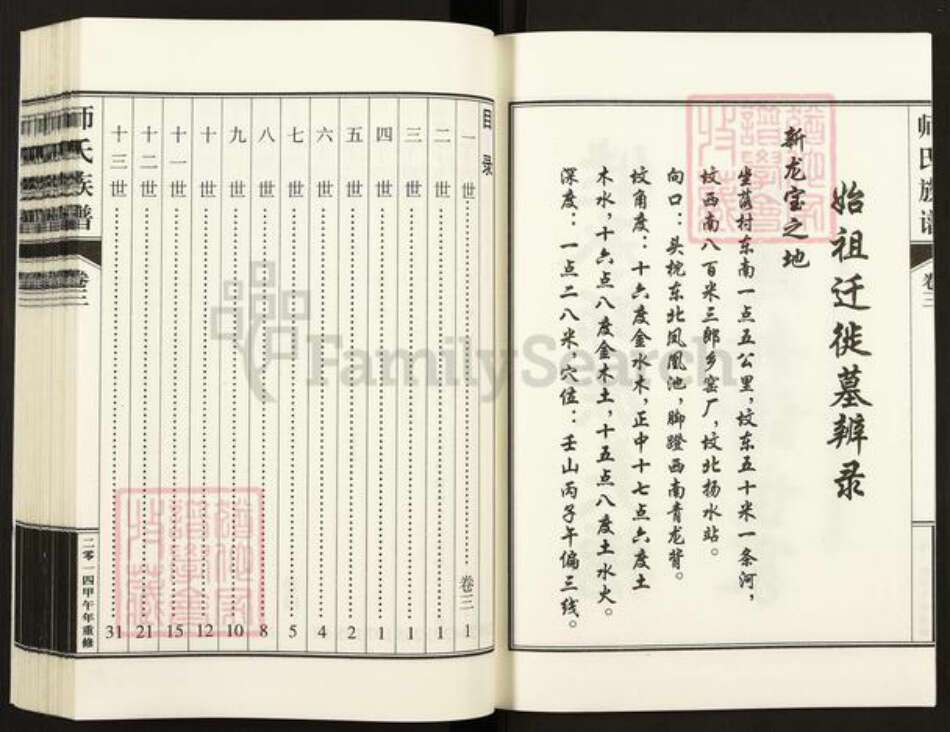 师氏族谱
卷三
始祖迁徙墓辨录
新龙宝之地
坐落村东南一点五公里，坟东五十米一条河，
坟西南八百米三郎乡窑厂，坟北扬水站。
向口：头枕东北凤凰池，脚蹬西南青龙背。
坟角度：十六度金水木，正中十七点六度土
木水，十六点八度金木土，十五点八度土水火。
深度：一点二八米穴位：壬山丙子午偏三线。
目录
一世 卷三 1
二世 1
三世 1
四世 1
五世 2
六世 4
七世 5
八世 8
九世 10
十世 12
十一世 15
十二世 21
十三世 31
师氏族谱
卷三
二零一四甲午年重修
FamilySearch